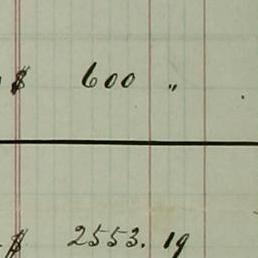 $ 600 "
$ 2553. 19